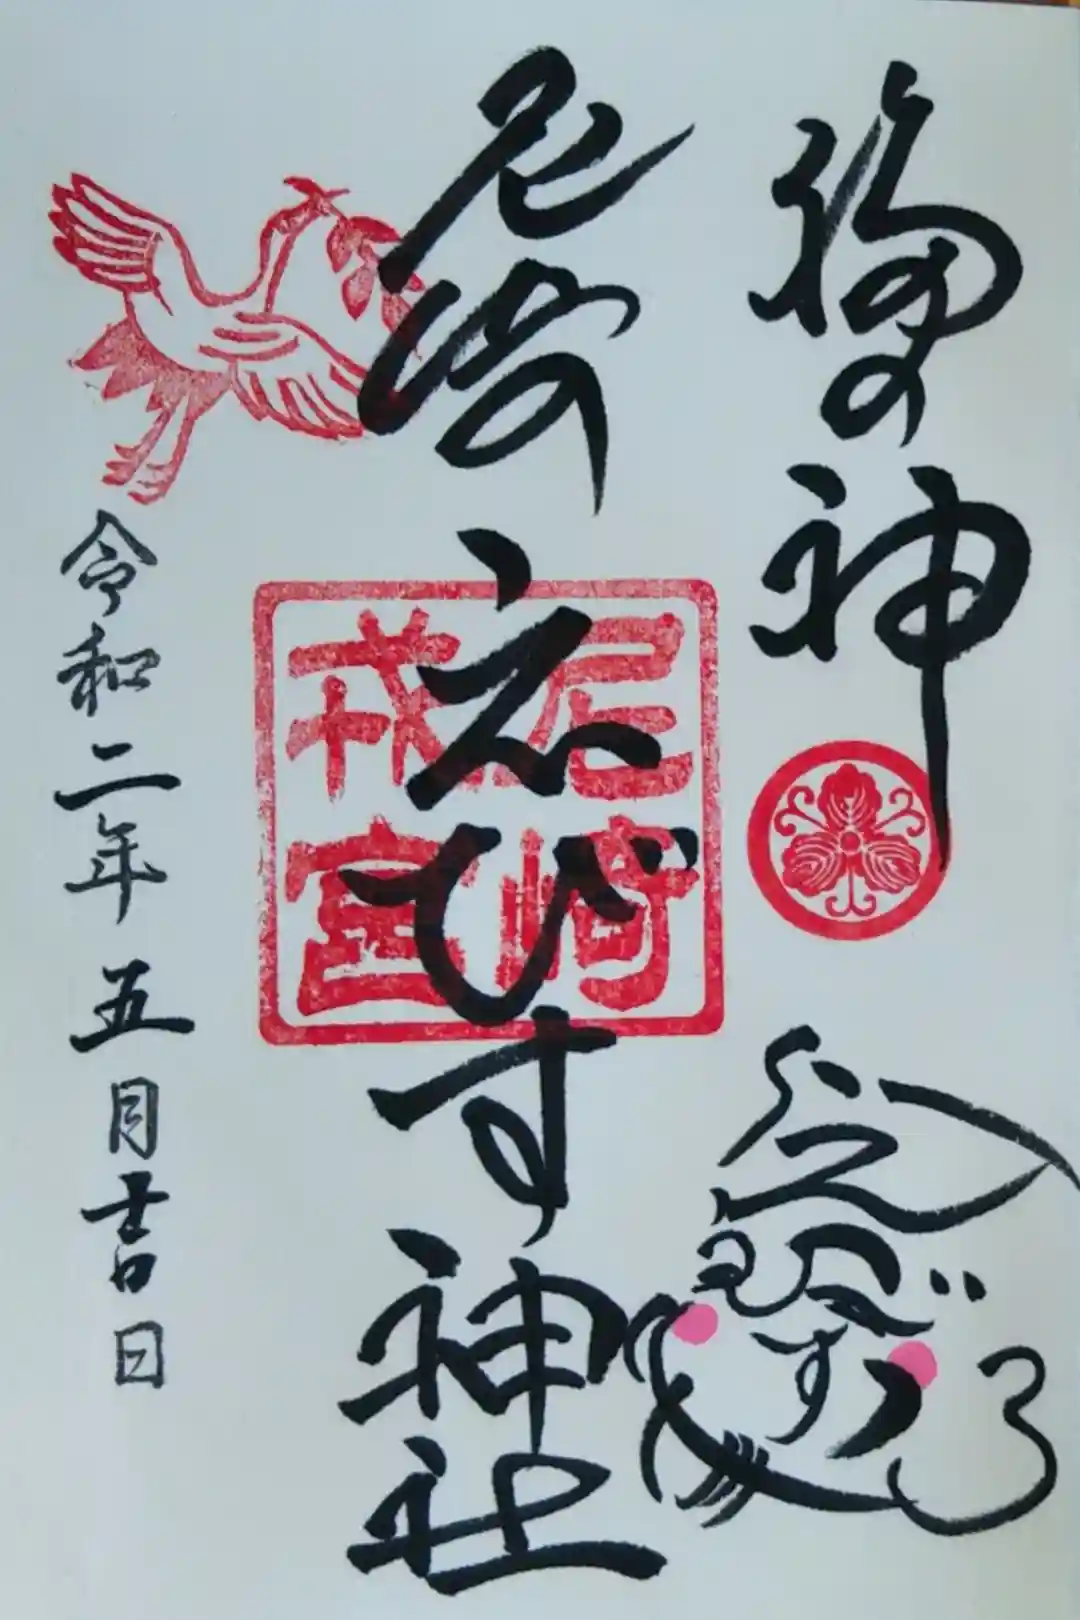 福の神
尼崎えびす神社
尼崎
戎宮
えびす
令和二年五月吉日